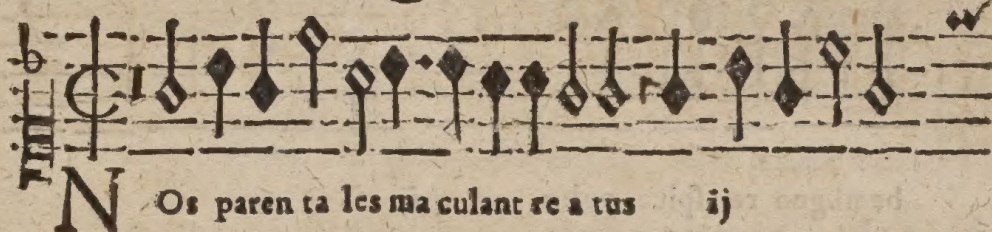 N Os paren ta les ma culant re a tus ij